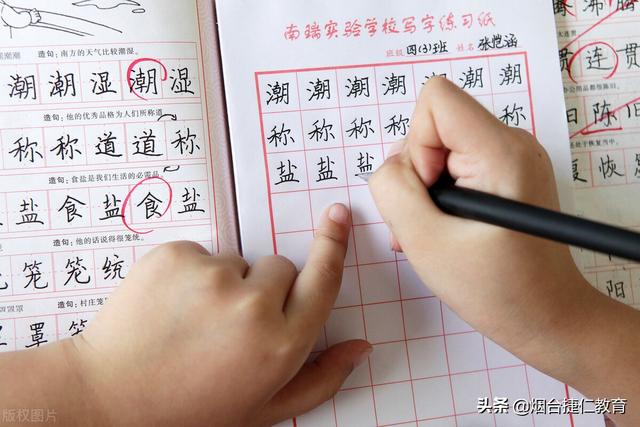 造句：南方的天气比较潮湿。
潮潮湿潮湿
造句：他的优秀品格为人们所称道
称称道道称
造句：食盐是我们生活的必需品
盐食盐食盐
造句：他的话说得很笼统。
笼笼统
造句：村庄笼
罩
南瑞实验学校写字练习纸
班级 四(3)班 姓名 张恺涵
潮潮潮潮潮潮潮
称称称称称
盐盐盐
沸
贯连贯
陈
复恢
阳
版权图片
头条 @烟台捷仁教育